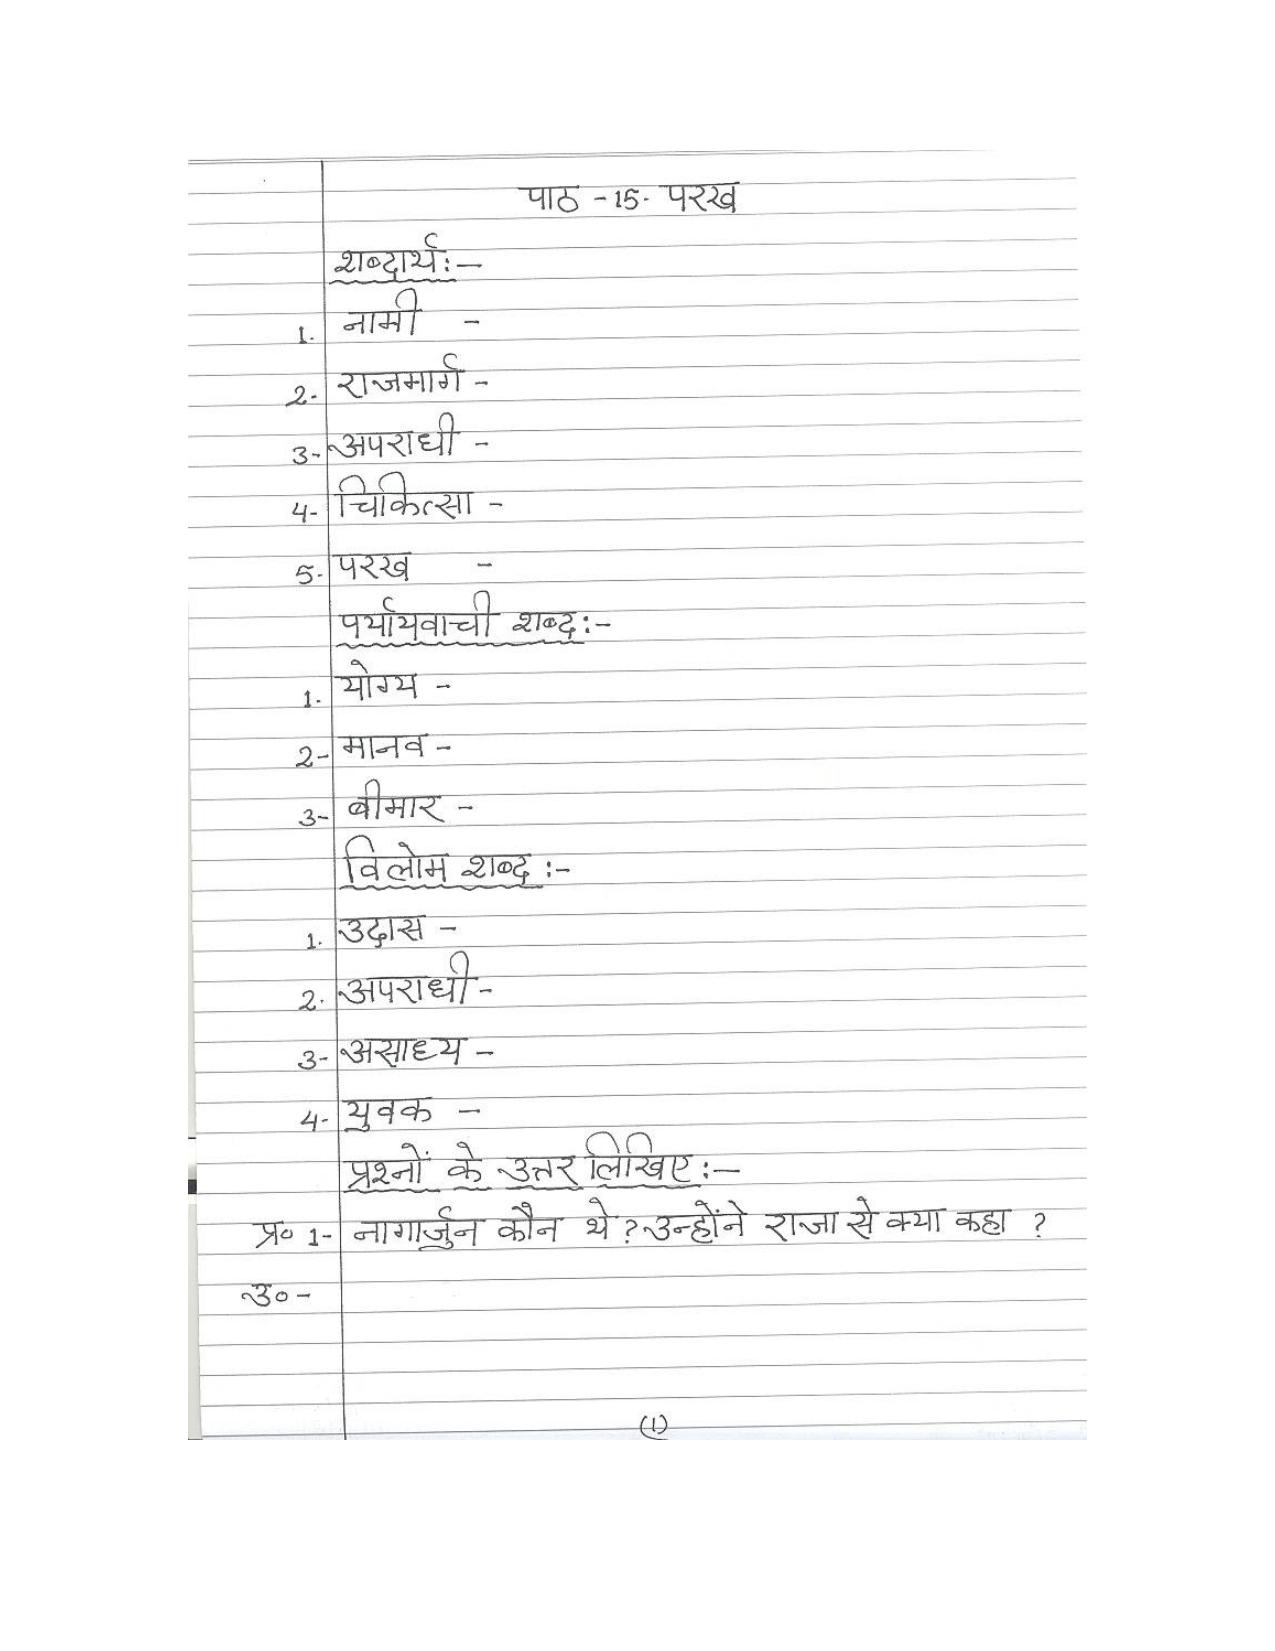 पाठ - 15. परख
शब्दार्थ:-
1. नामी -
2. राजमार्ग -
3- अपराधी -
4- चिकित्सा -
5. परख -
पर्यायवाची शब्द:-
1. योग्य -
2- मानव -
3- बीमार -
विलोम शब्द :-
1. उदास -
2. अपराधी -
3- असाध्य -
4- युवक -
प्रश्नों के उत्तर लिखिए :-
प्र० 1- नागार्जुन कौन थे ? उन्होंने राजा से क्या कहा ?
उ० -
(1)